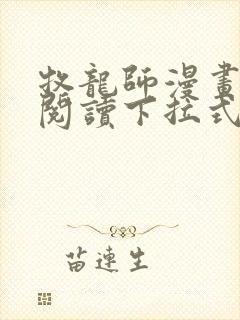 牧龍師漫畫
閱讀下拉式
苗連生